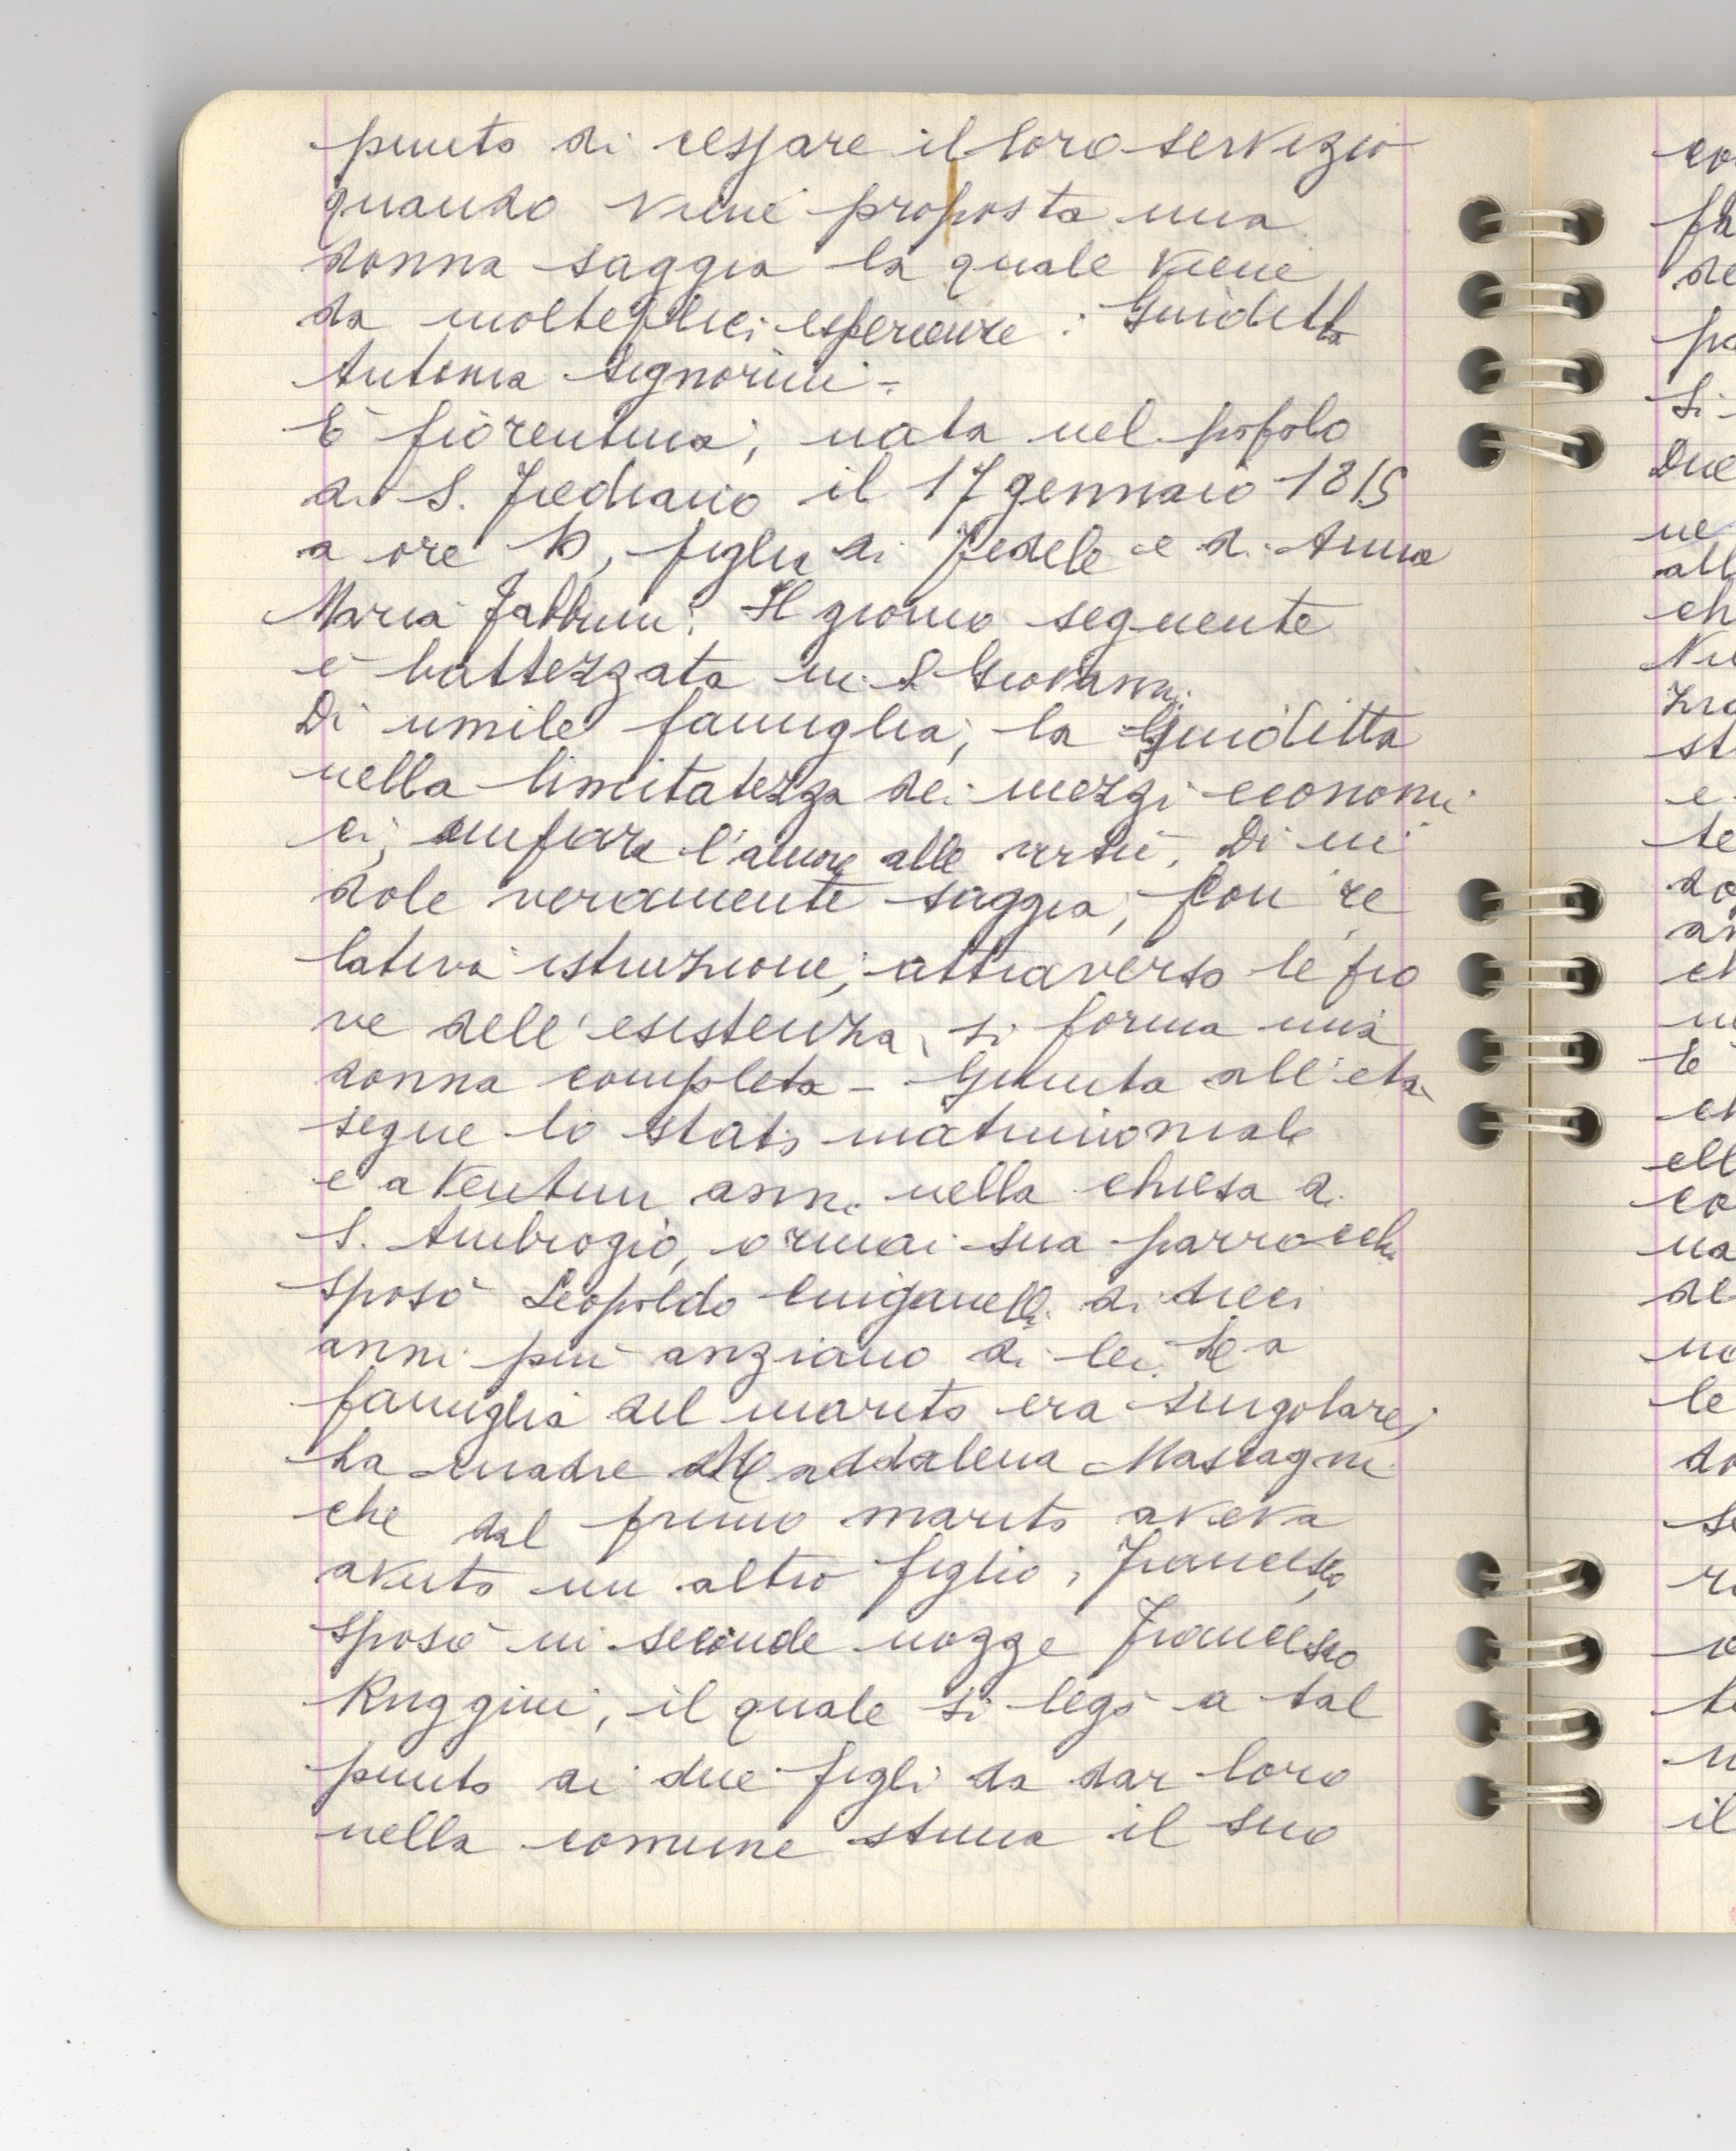 punto di cessare il loro servizio
quando viene proposta una
donna saggia la quale viene
da molteplici esperienze : Guiditta
Antonia Signorini -
È fiorentina, nata nel popolo
di S. Frediano il 17 gennaio 1815
a ore 10, figlia di Fedele e di Anna
Maria Fabbrini. Il giorno seguente
è battezzata in S. Giovanni.
Di umile famiglia, la Guiditta
nella limitatezza dei mezzi economi
ci, impara l'amore alle virtù. Di in
dole veramente saggia, con re
lativa istruzione, attraverso le pro
ve dell'esistenza, si forma una
donna completa - Giunta all'età
segue lo stato matrimoniale
e a ventun anni nella chiesa di
S. Ambrogio, ormai sua parrocchi
sposò Leopoldo di dieci
anni più anziano di lei. La
famiglia del marito era singolare,
La madre Maddalena Mascagni
che dal primo marito aveva
avuto un altro figlio, Francesco,
sposò in seconde nozze Francesco
Ruggini, il quale si legò a tal
punto ai due figli da dar loro
nella comune stima il suo